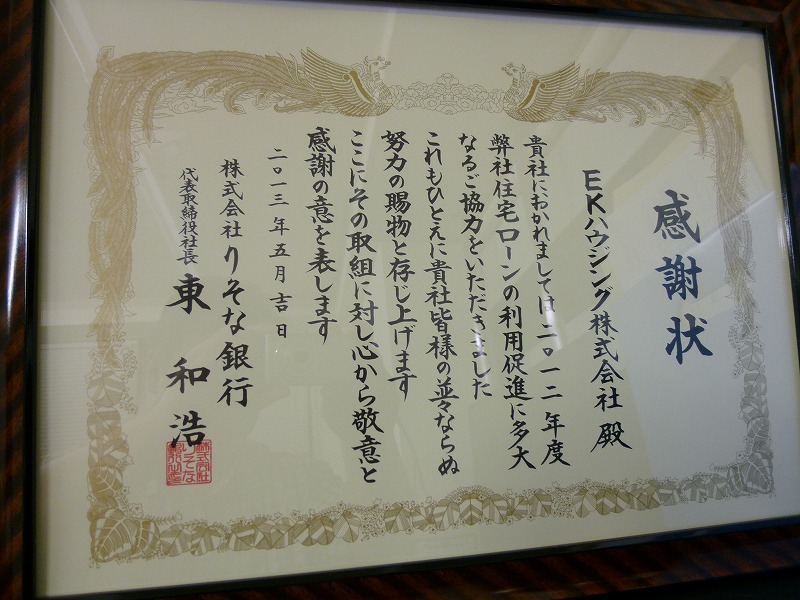 感謝状
EKハウジング株式会社 殿
貴社におかれましては二〇一二年度
弊社住宅ローンの利用促進に多大
なるご協力をいただきました
これもひとえに貴社皆様の並々ならぬ
努力の賜物と存じ上げます
ここにその取組に対し心から敬意と
感謝の意を表します
二〇一三年五月吉日
株式会社りそな銀行
代表取締役社長 東 和浩
株式会社
りそな